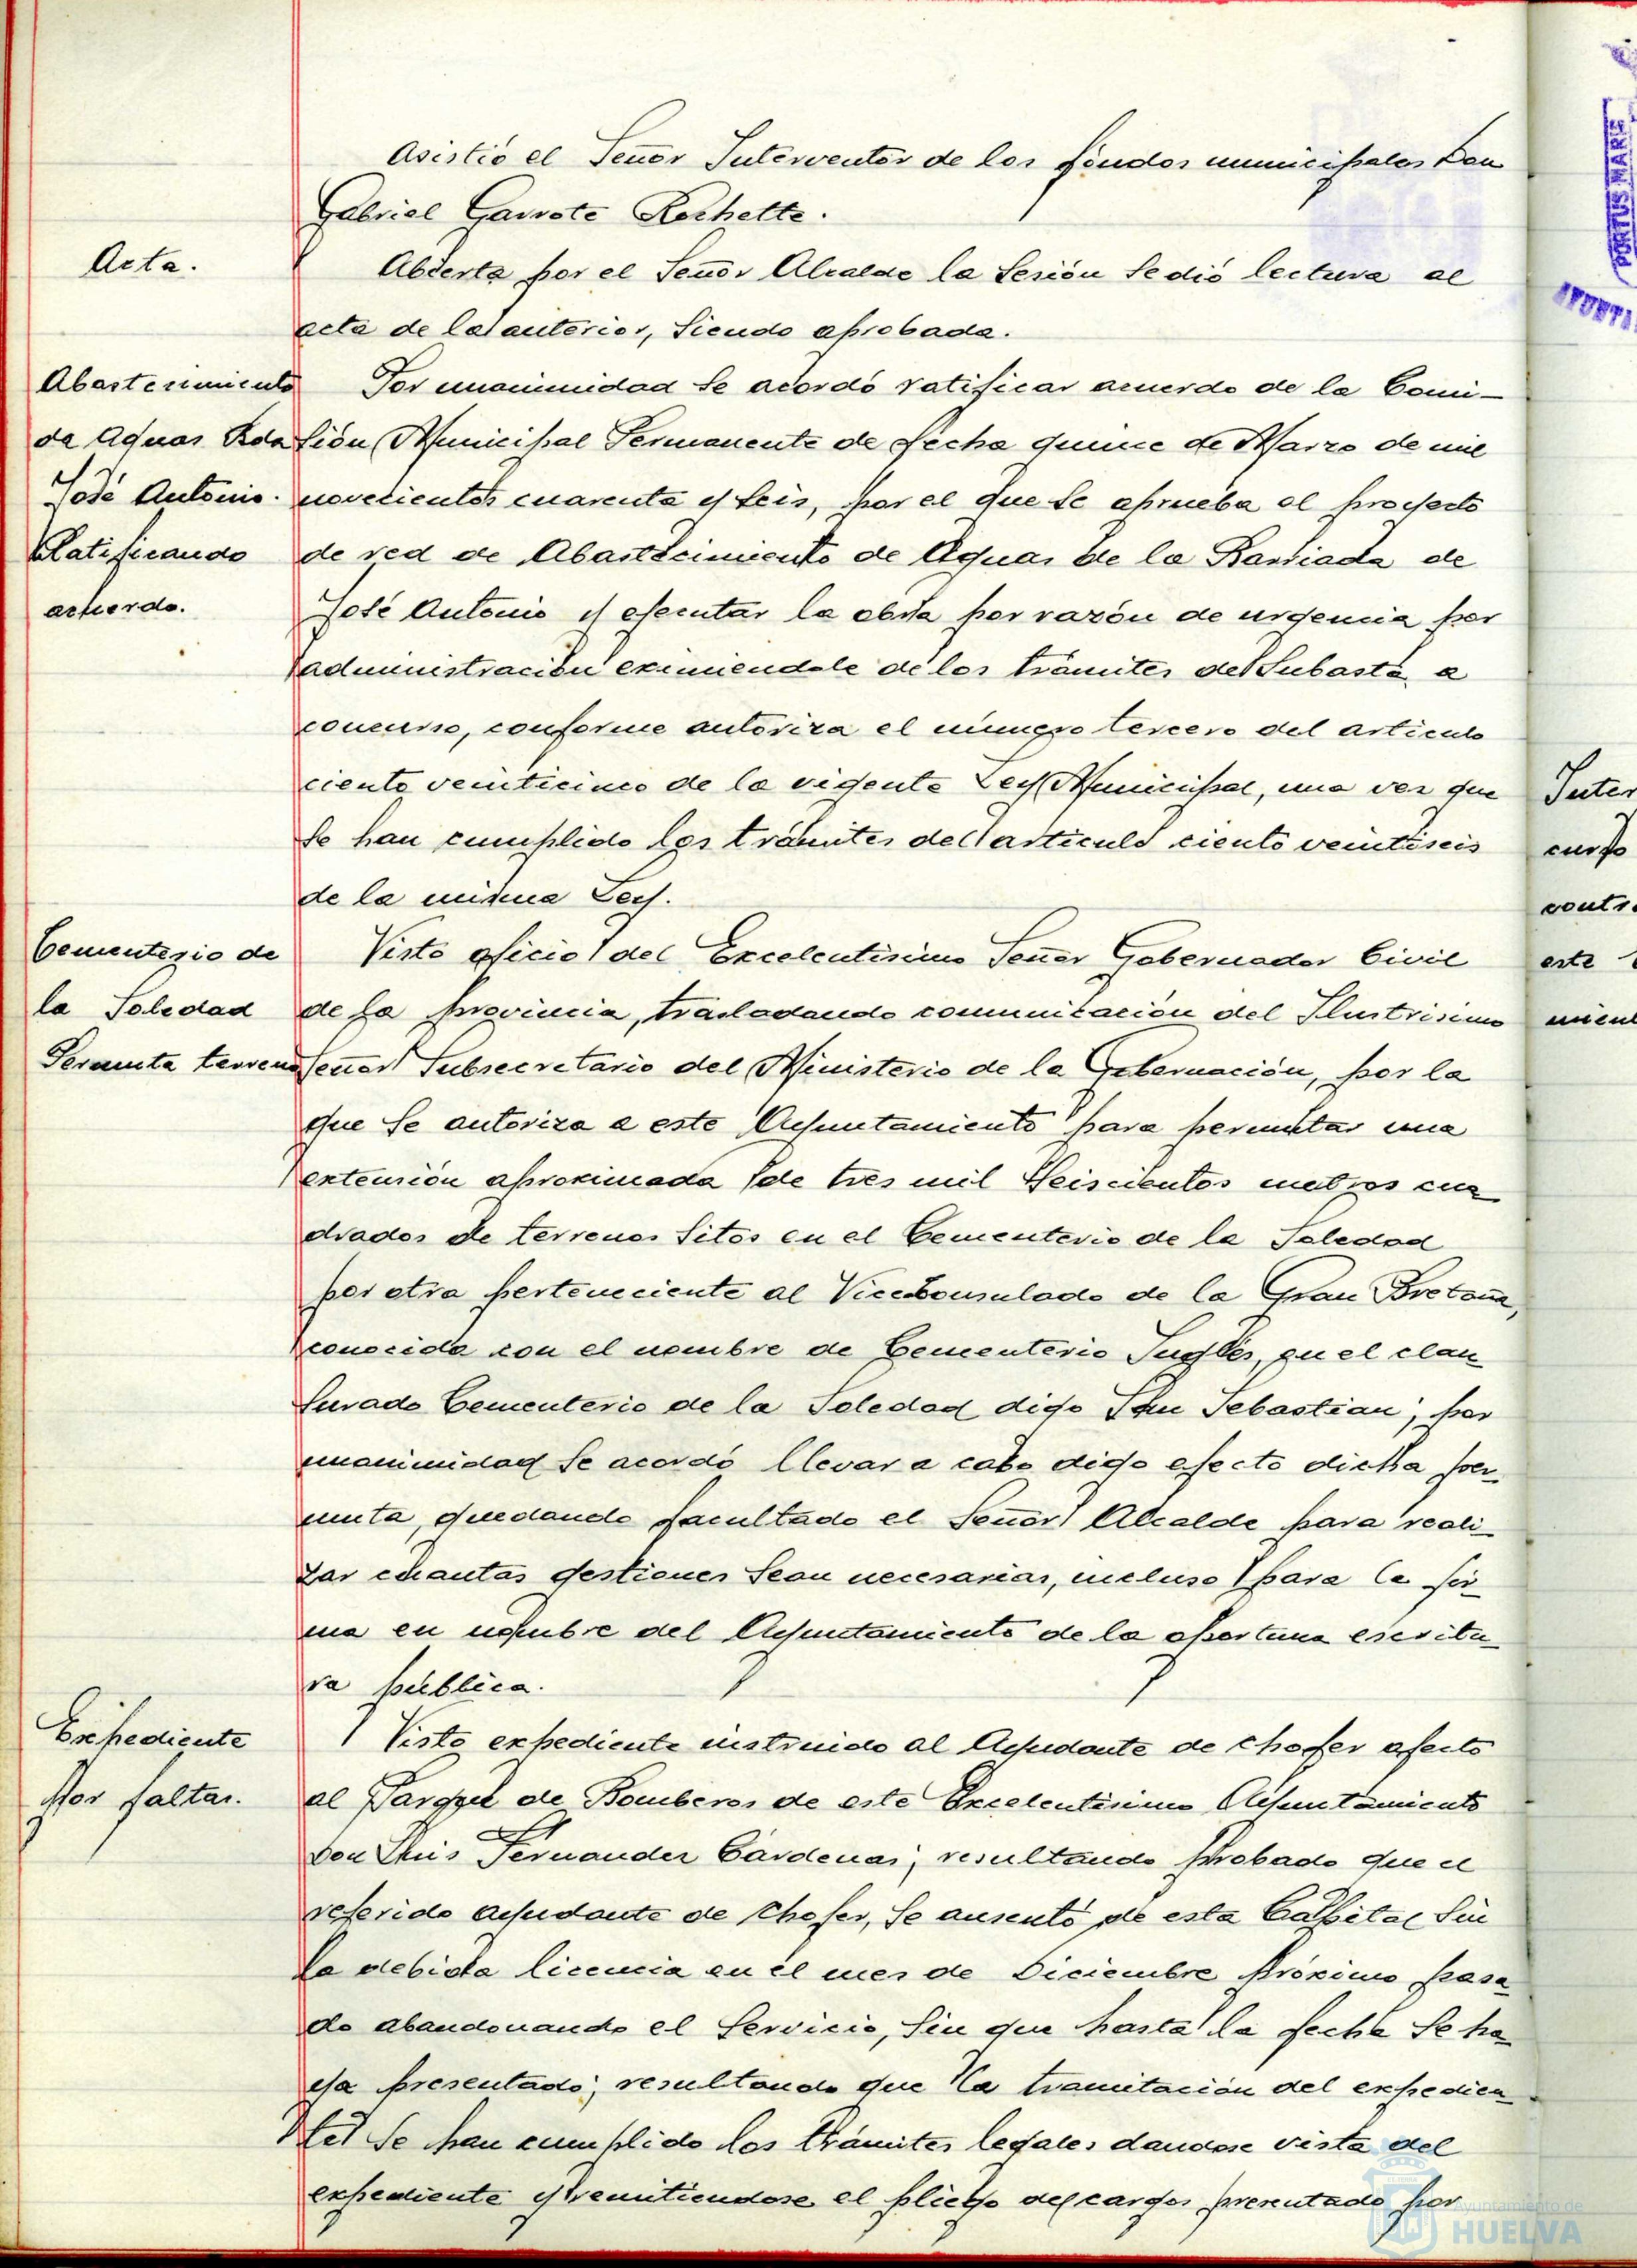 Asistió el Señor Interventor de los fondos municipales Don
Gabriel Garrote Rochette.
Acta.
Abierta por el Señor Alcalde la Sesión Se dió lectura al
acta de la anterior, Siendo aprobada.
Abastecimiento
de Aguas Bda
José Antonio.
Ratificando
acuerdo.
Por unanimidad Se acordó ratificar acuerdo de la Comi-
sión Municipal Permanente de fecha quince de Marzo de mil
novecientos cuarenta y seis, por el que Se aprueba el proyecto
de red de Abastecimiento de Aguas de la Barriada de
José Antonio y ejecutar la obra por razón de urgencia por
administración eximiendole de los trámites de Subasta a
concurso, conforme autoriza el número tercero del articulo
ciento veinticinco de la vigente Ley Municipal, una vez que
Se han cumplido los trámites del articulo ciento veintiseis
de la misma Ley.
Cementerio de
la Soledad
Permuta terreno
Visto oficio del Excelentisimo Señor Gobernador Civil
de la provincia, trasladando comunicación del Ilustrisimo
Señor Subsecretario del Ministerio de la Gobernación, por la
que Se autoriza a este Ayuntamiento para permutar una
extensión aproximada de tres mil Seiscientos metros cua
drados de terrenos Sitos en el Cementerio de la Soledad
por otra perteneciente al ViceConsulado de la Gran Bretaña,
conocida con el nombre de Cementerio Inglés, en el clau
surado Cementerio de la Soledad digo San Sebastian; por
unanimidad Se acordó llevar a cabo digo efecto dicha per
muta, quedando facultado el Señor Alcalde para reali
zar cuantas gestiones Sean necesarias, incluso para la fir
ma en nombre del Ayuntamiento de la oportuna escritu
ra pública.
Expediente
por faltas.
Visto expediente instruido al Ayudante de chofer afecto
al Parque de Bomberos de este Excelentisimo Ayuntamiento
Don Luis Fernandez Cárdenas; resultando probado que el
referido ayudante de chofer, Se ausentó de esta Capital Sin
la debida licencia en el mes de Diciembre próximo pasa
do abandonando el Servicio, Sin que hasta la fecha Se ha
ya presentado; resultando que la tramitación del expedien
te Se han cumplido los trámites legales dandose vista del
expediente y remitiendose el pliego de cargos presentado por
Inter
curso
contr
este
mien
PORTUS MARIS
AYUNTA
Ayuntamiento de
HUELVA